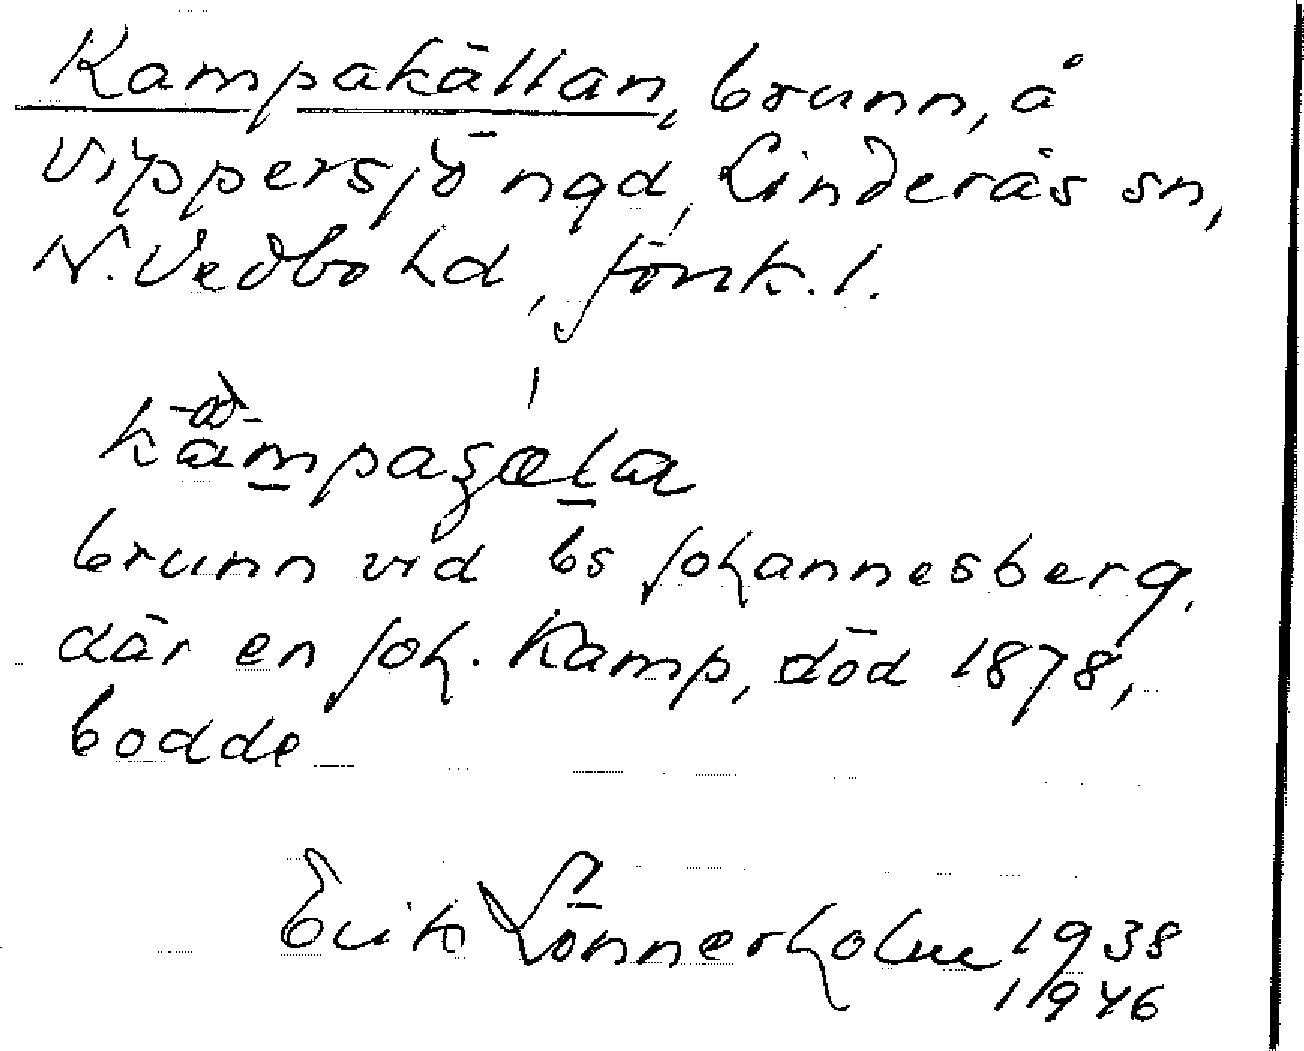 Kampakällan, brunn, å
Vippersjö ngd, Linderås sn,
N. Vedbo hd, Jönk. l.
brunn vid bs Johannesberg,
där en Joh. Kamp, död 1878,
bodde
Erik Lönnerholm 1938
1946